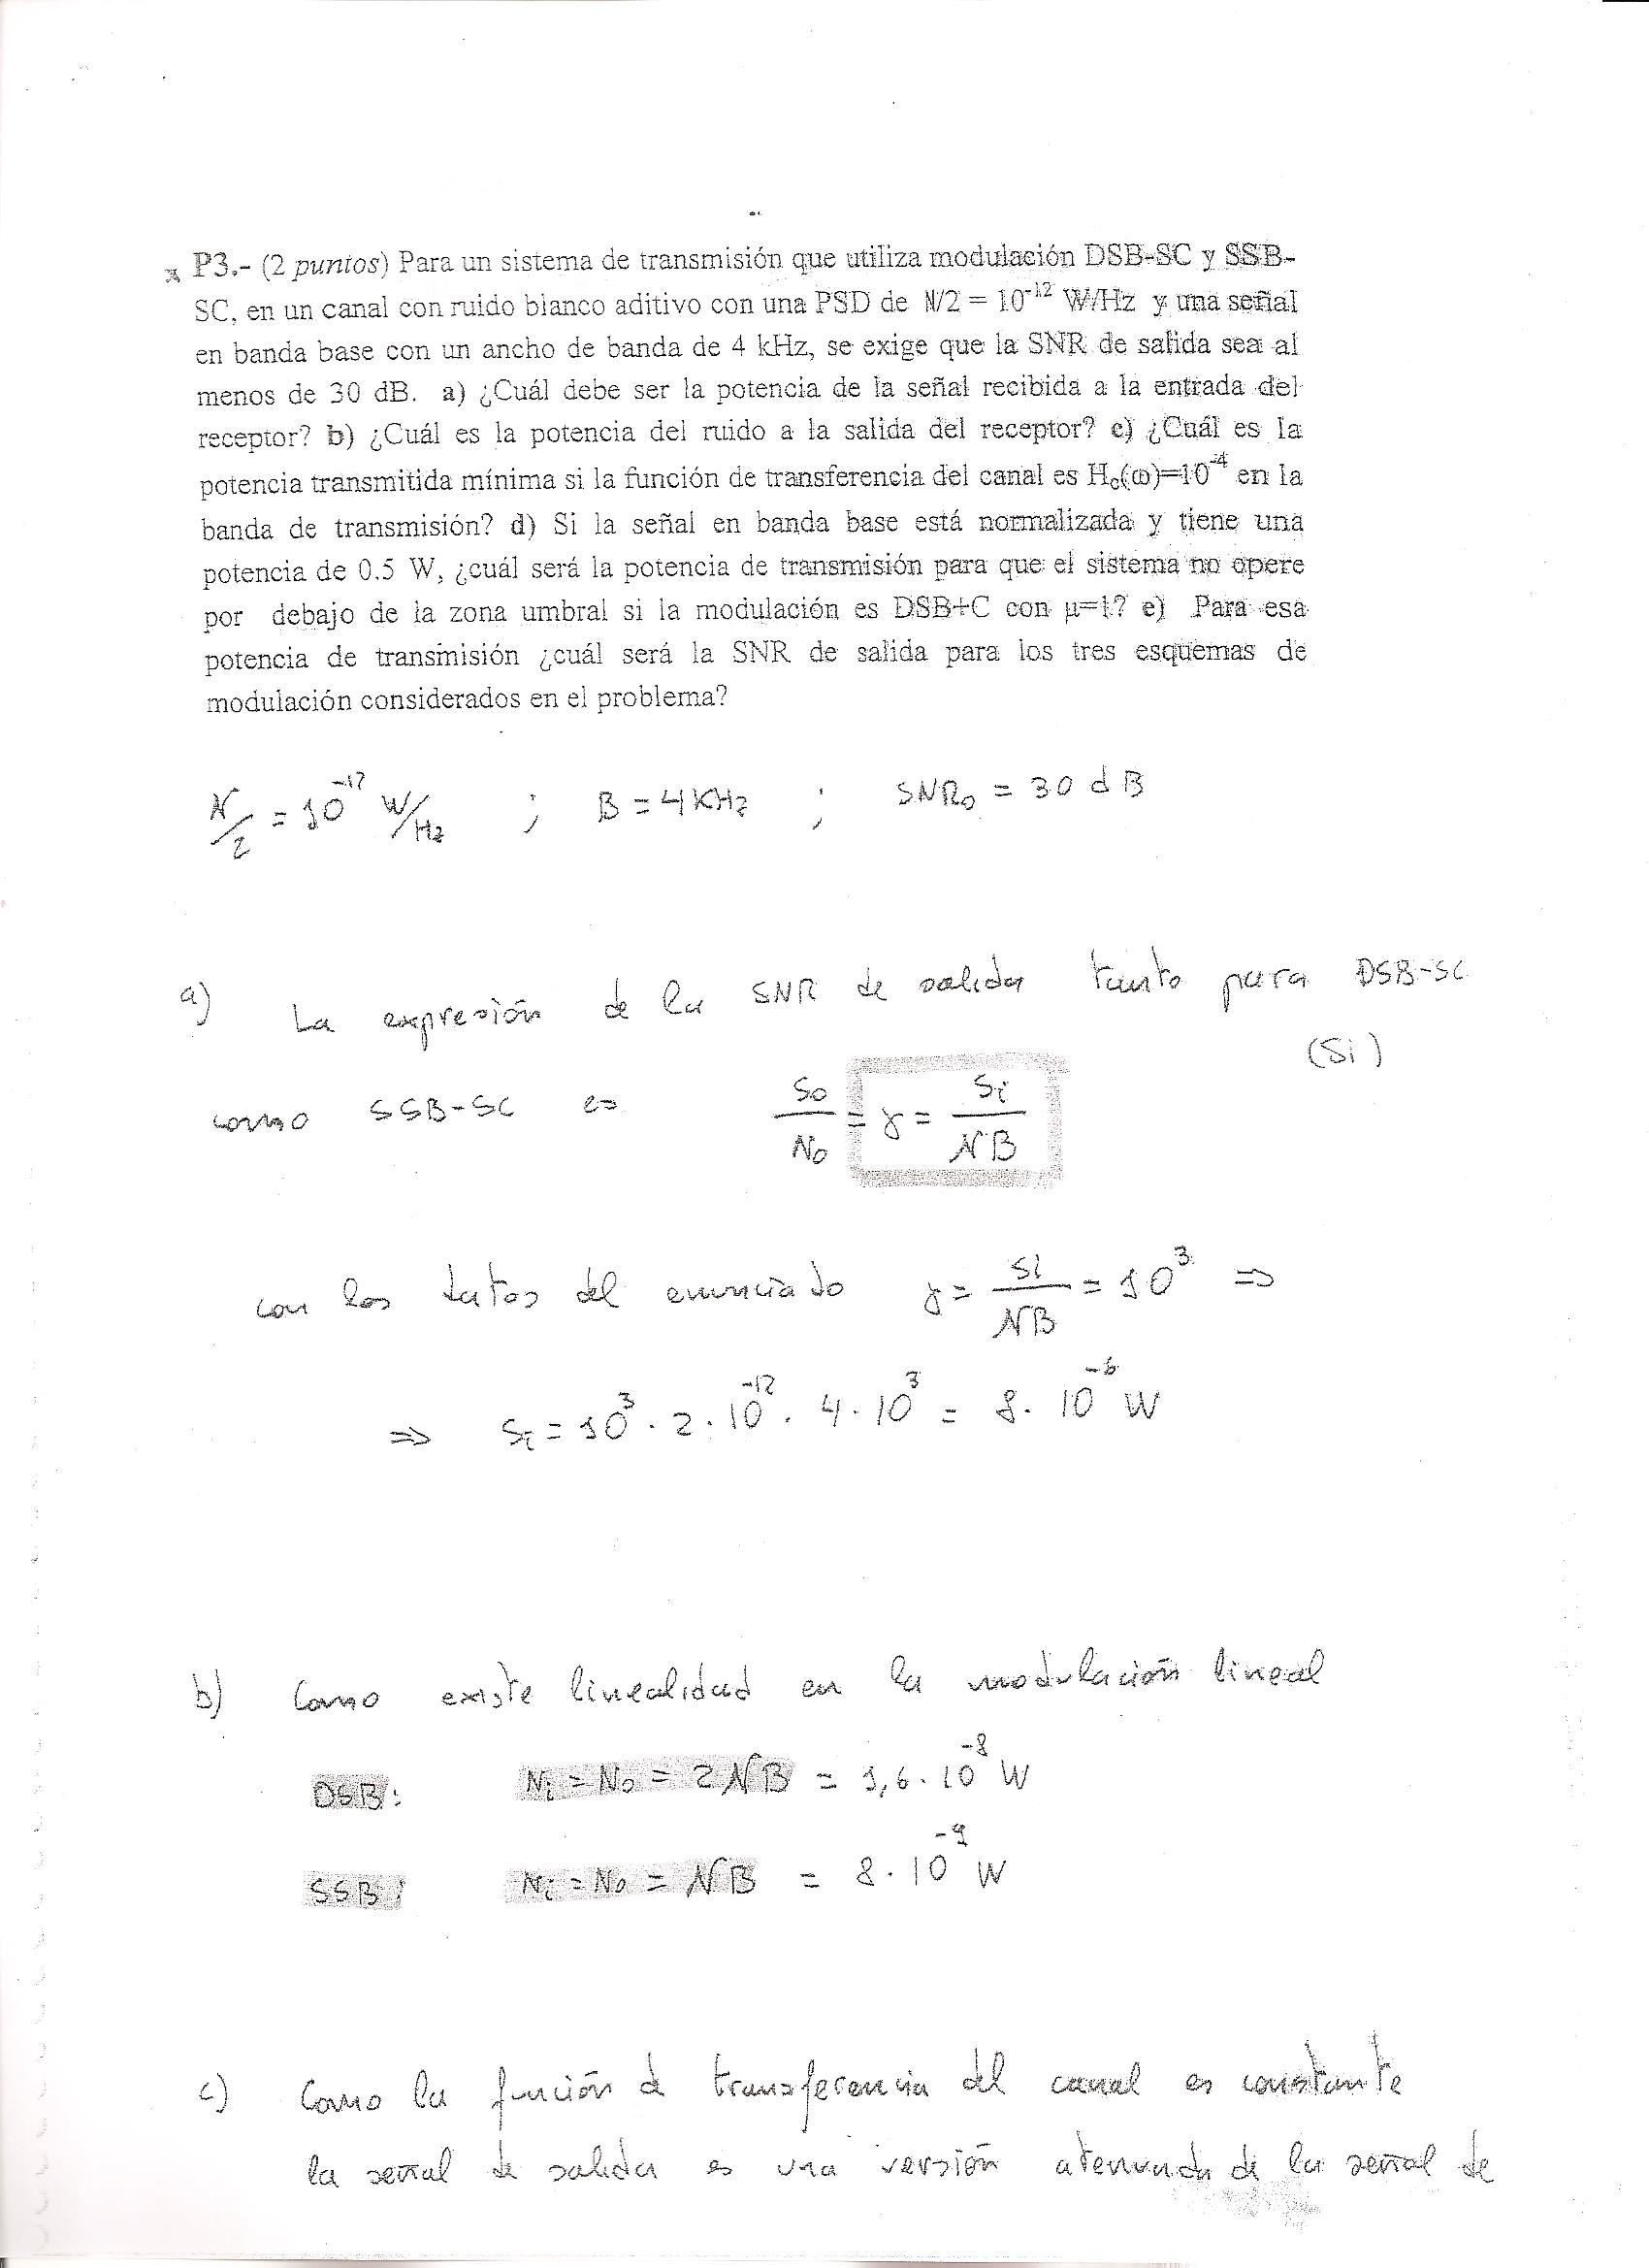 x P3.- (2 puntos) Para un sistema de transmisión que utiliza modulación DSB-SC y SSB-
SC, en un canal con ruido blanco aditivo con una PSD de N/2 = 10⁻¹² W/Hz y una señal
en banda base con un ancho de banda de 4 kHz, se exige que la SNR de salida sea al
menos de 30 dB. a) ¿Cuál debe ser la potencia de la señal recibida a la entrada del
receptor? b) ¿Cuál es la potencia del ruido a la salida del receptor? c) ¿Cuál es la
potencia transmitida mínima si la función de transferencia del canal es Hc(ω)=10⁻⁴ en la
banda de transmisión? d) Si la señal en banda base está normalizada y tiene una
potencia de 0.5 W, ¿cuál será la potencia de transmisión para que el sistema no opere
por debajo de la zona umbral si la modulación es DSB+C con μ=1? e) Para esa
potencia de transmisión ¿cuál será la SNR de salida para los tres esquemas de
modulación considerados en el problema?
N/2 = 10⁻¹² W/Hz ; B = 4 KHz ; SNR₀ = 30 dB
a) La expresión de la SNR de salida tanto para DSB-SC
(Si)
como SSB-SC es So/No = γ = Si/NB
con los datos del enunciado γ = Si/NB = 10³ ⇒
⇒ Si = 10³ · 2 · 10⁻¹² · 4 · 10³ = 8 · 10⁻⁶ W
b) Como existe linealidad en la modulación lineal
DSB: Ni = No = 2NB = 1,6 · 10⁻⁸ W
SSB: Ni = No = NB = 8 · 10⁻⁹ W
c) Como la función de transferencia del canal es constante
la señal de salida es una versión atenuada de la señal de